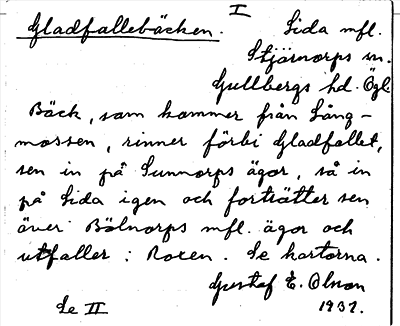 I
Gladfallebäcken. Lida mfl.
Stjärnorps sn.
Gullbergs hd. Ögl.
Bäck, som kommer från Lång-
mossen, rinner förbi Gladfallet,
sen in på Sunnorps ägor, så in
på Lida igen och fortsätter sen
över Bölnorps mfl. ägor och
utfaller i Roxen. Se kartorna.
Gustaf E. Olson
Se II 1932.